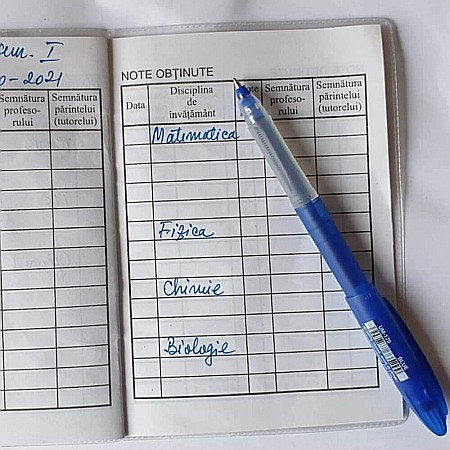 sem. I
0-2021
Semnătura profeso-rului
Semnătura părintelui (tutorelui)
NOTE OBȚINUTE
Data
Disciplina de învățământ
Semnătura profeso-rului
Semnătura părintelui (tutorelui)
Matematica
Fizica
Chimie
Biologie